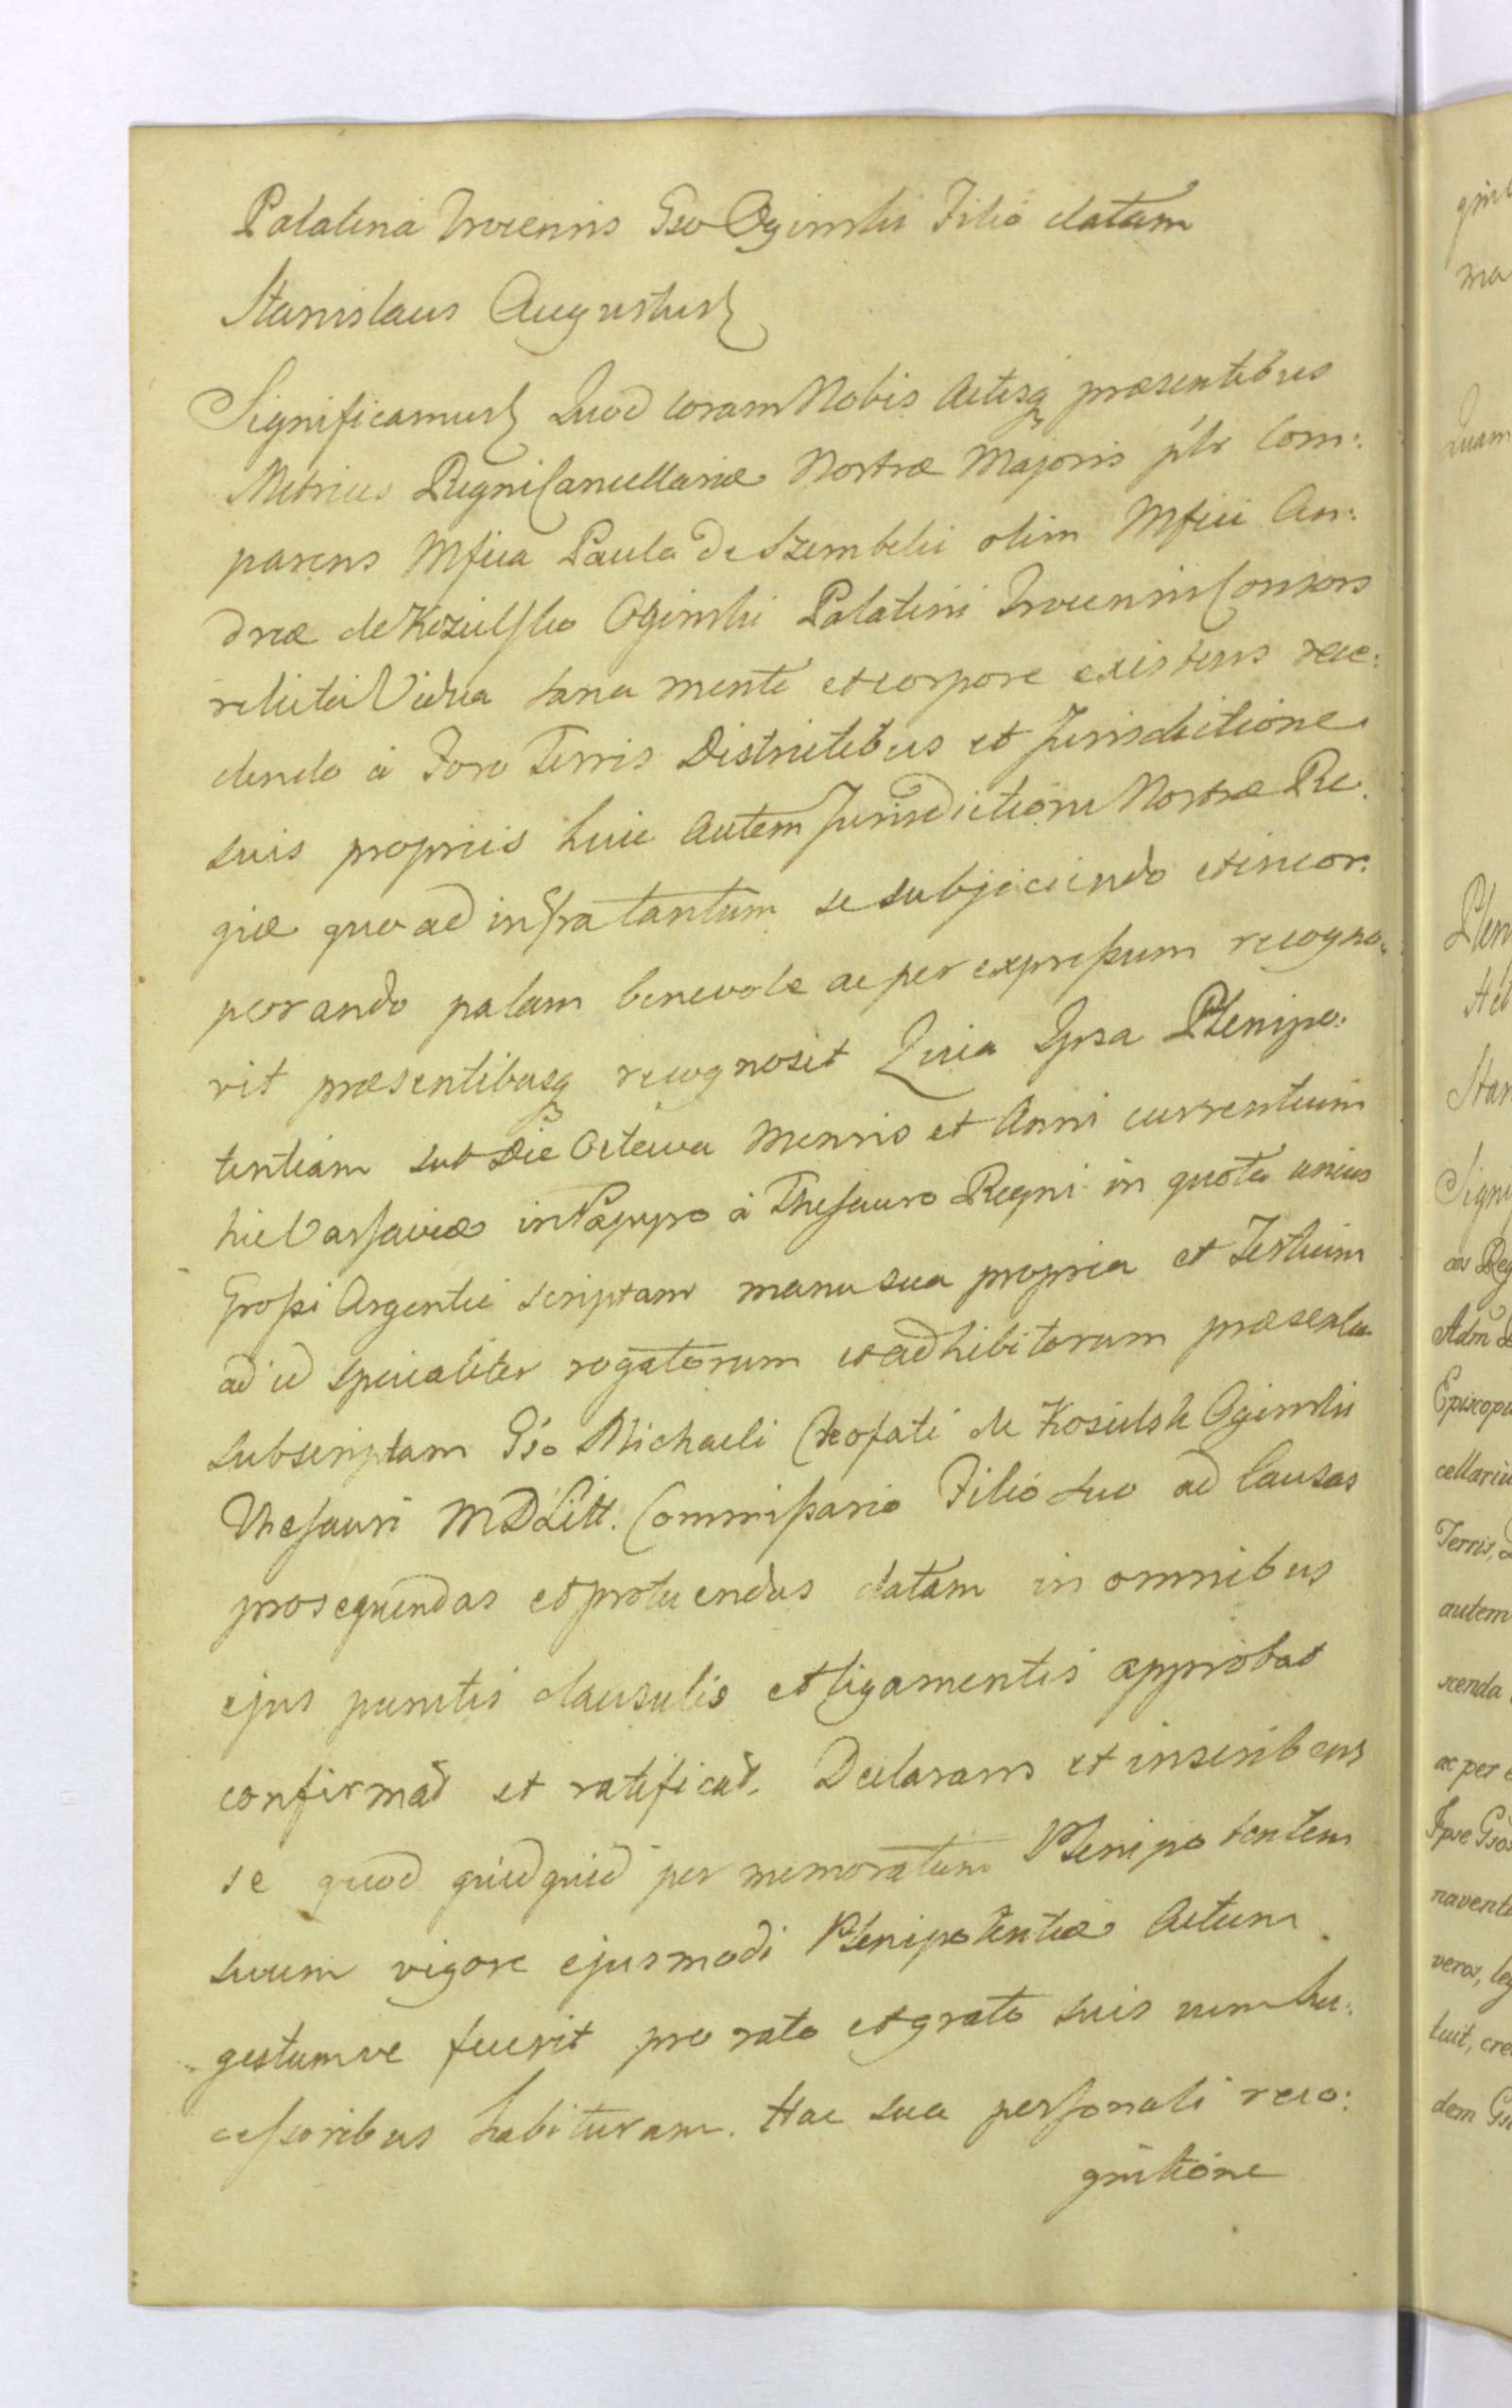 Palatina Trocensis Gso Oginski Filio datam
Stanislaus Augustus
Significamus Quod coram Nobis Actisq præsentibus
Metrices Regni Cancellariæ Nostræ Majoris plr Com:
parens Mfica Paula de Szembeki olim Mfici An:
dreæ de Kozielsko Oginski Palatini Trocensis Consors
relicta Vidua sana mente et corpore existens rece:
dendo à Foro Terris Districtibus et Jurisdictione
suis propriis huic autem Jurisdictioni Nostræ Re
giæ quo ad infra tantum se subjiciendo et incor:
porando palam benevole ac per expressum recogno:
vit præsentibusq recognoscit Quia Ipsa Plenipo:
tentiam sub Die Octava Mensis et Anni currentium
hic Varsaviæ in Papyro à Thesauro Regni in quota unius
Grossi Argentei scriptam manu sua propria et Testium
ad id specialiter rogatorum et adhibitorum præsentia
subscriptam Gso Michaeli Cleofati de Kosielsk Oginski
Thesauri MDLitt. Commissario Filio suo ad Causas
prosequendas et protuendas datam in omnibus
ejus punctis clausulis et ligamentis approbat
confirmat et ratificat. Declarans et inscribens
se quod quidquid per memoratum Plenipotentem
suum vigore ejusmodi Plenipotentiæ Actum
gestumve fuerit pro rato et grato suis cum Suc:
cessoribus habituram. Hac sua personali reco:
gnitione
ma
Plen
Stan
Signi
Episcopu
cellariu
Terris,
autem
scenda
ac per e
Ipse Gso
navente
veros, leg
luit, cre
dem Gs